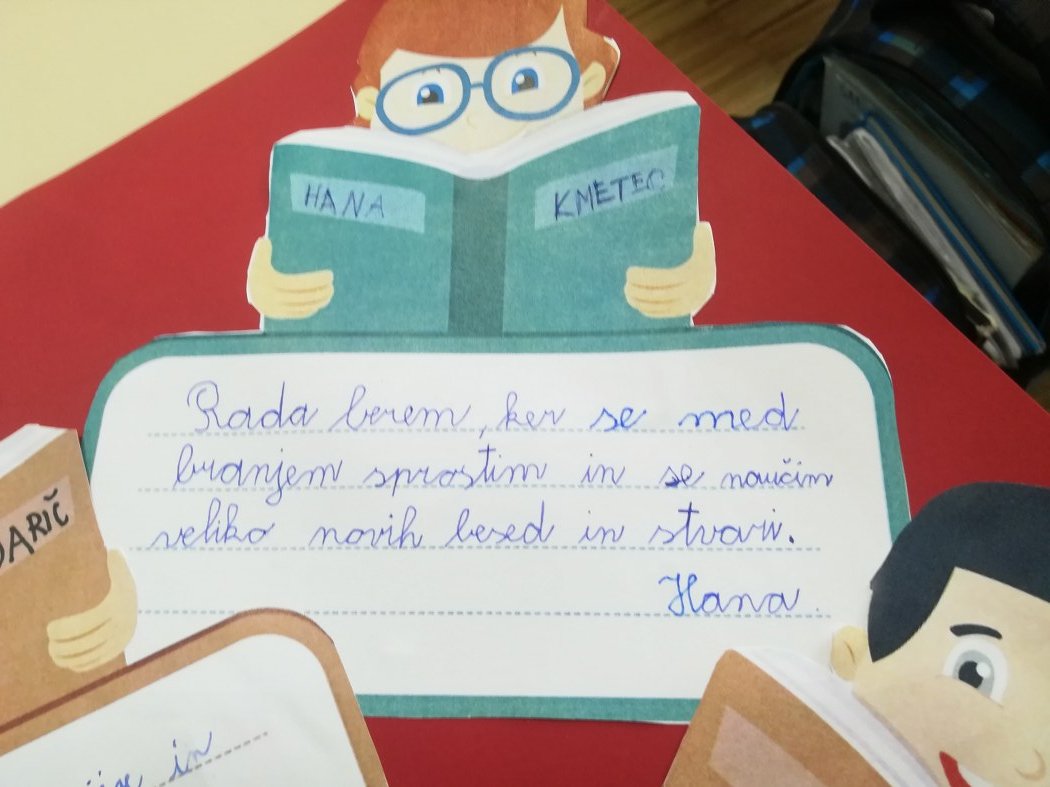 HANA
KMETEC
Rada berem, ker se med
branjem sprostim in se naučim
veliko novih besed in stvari.
Hana
DARIČ
in